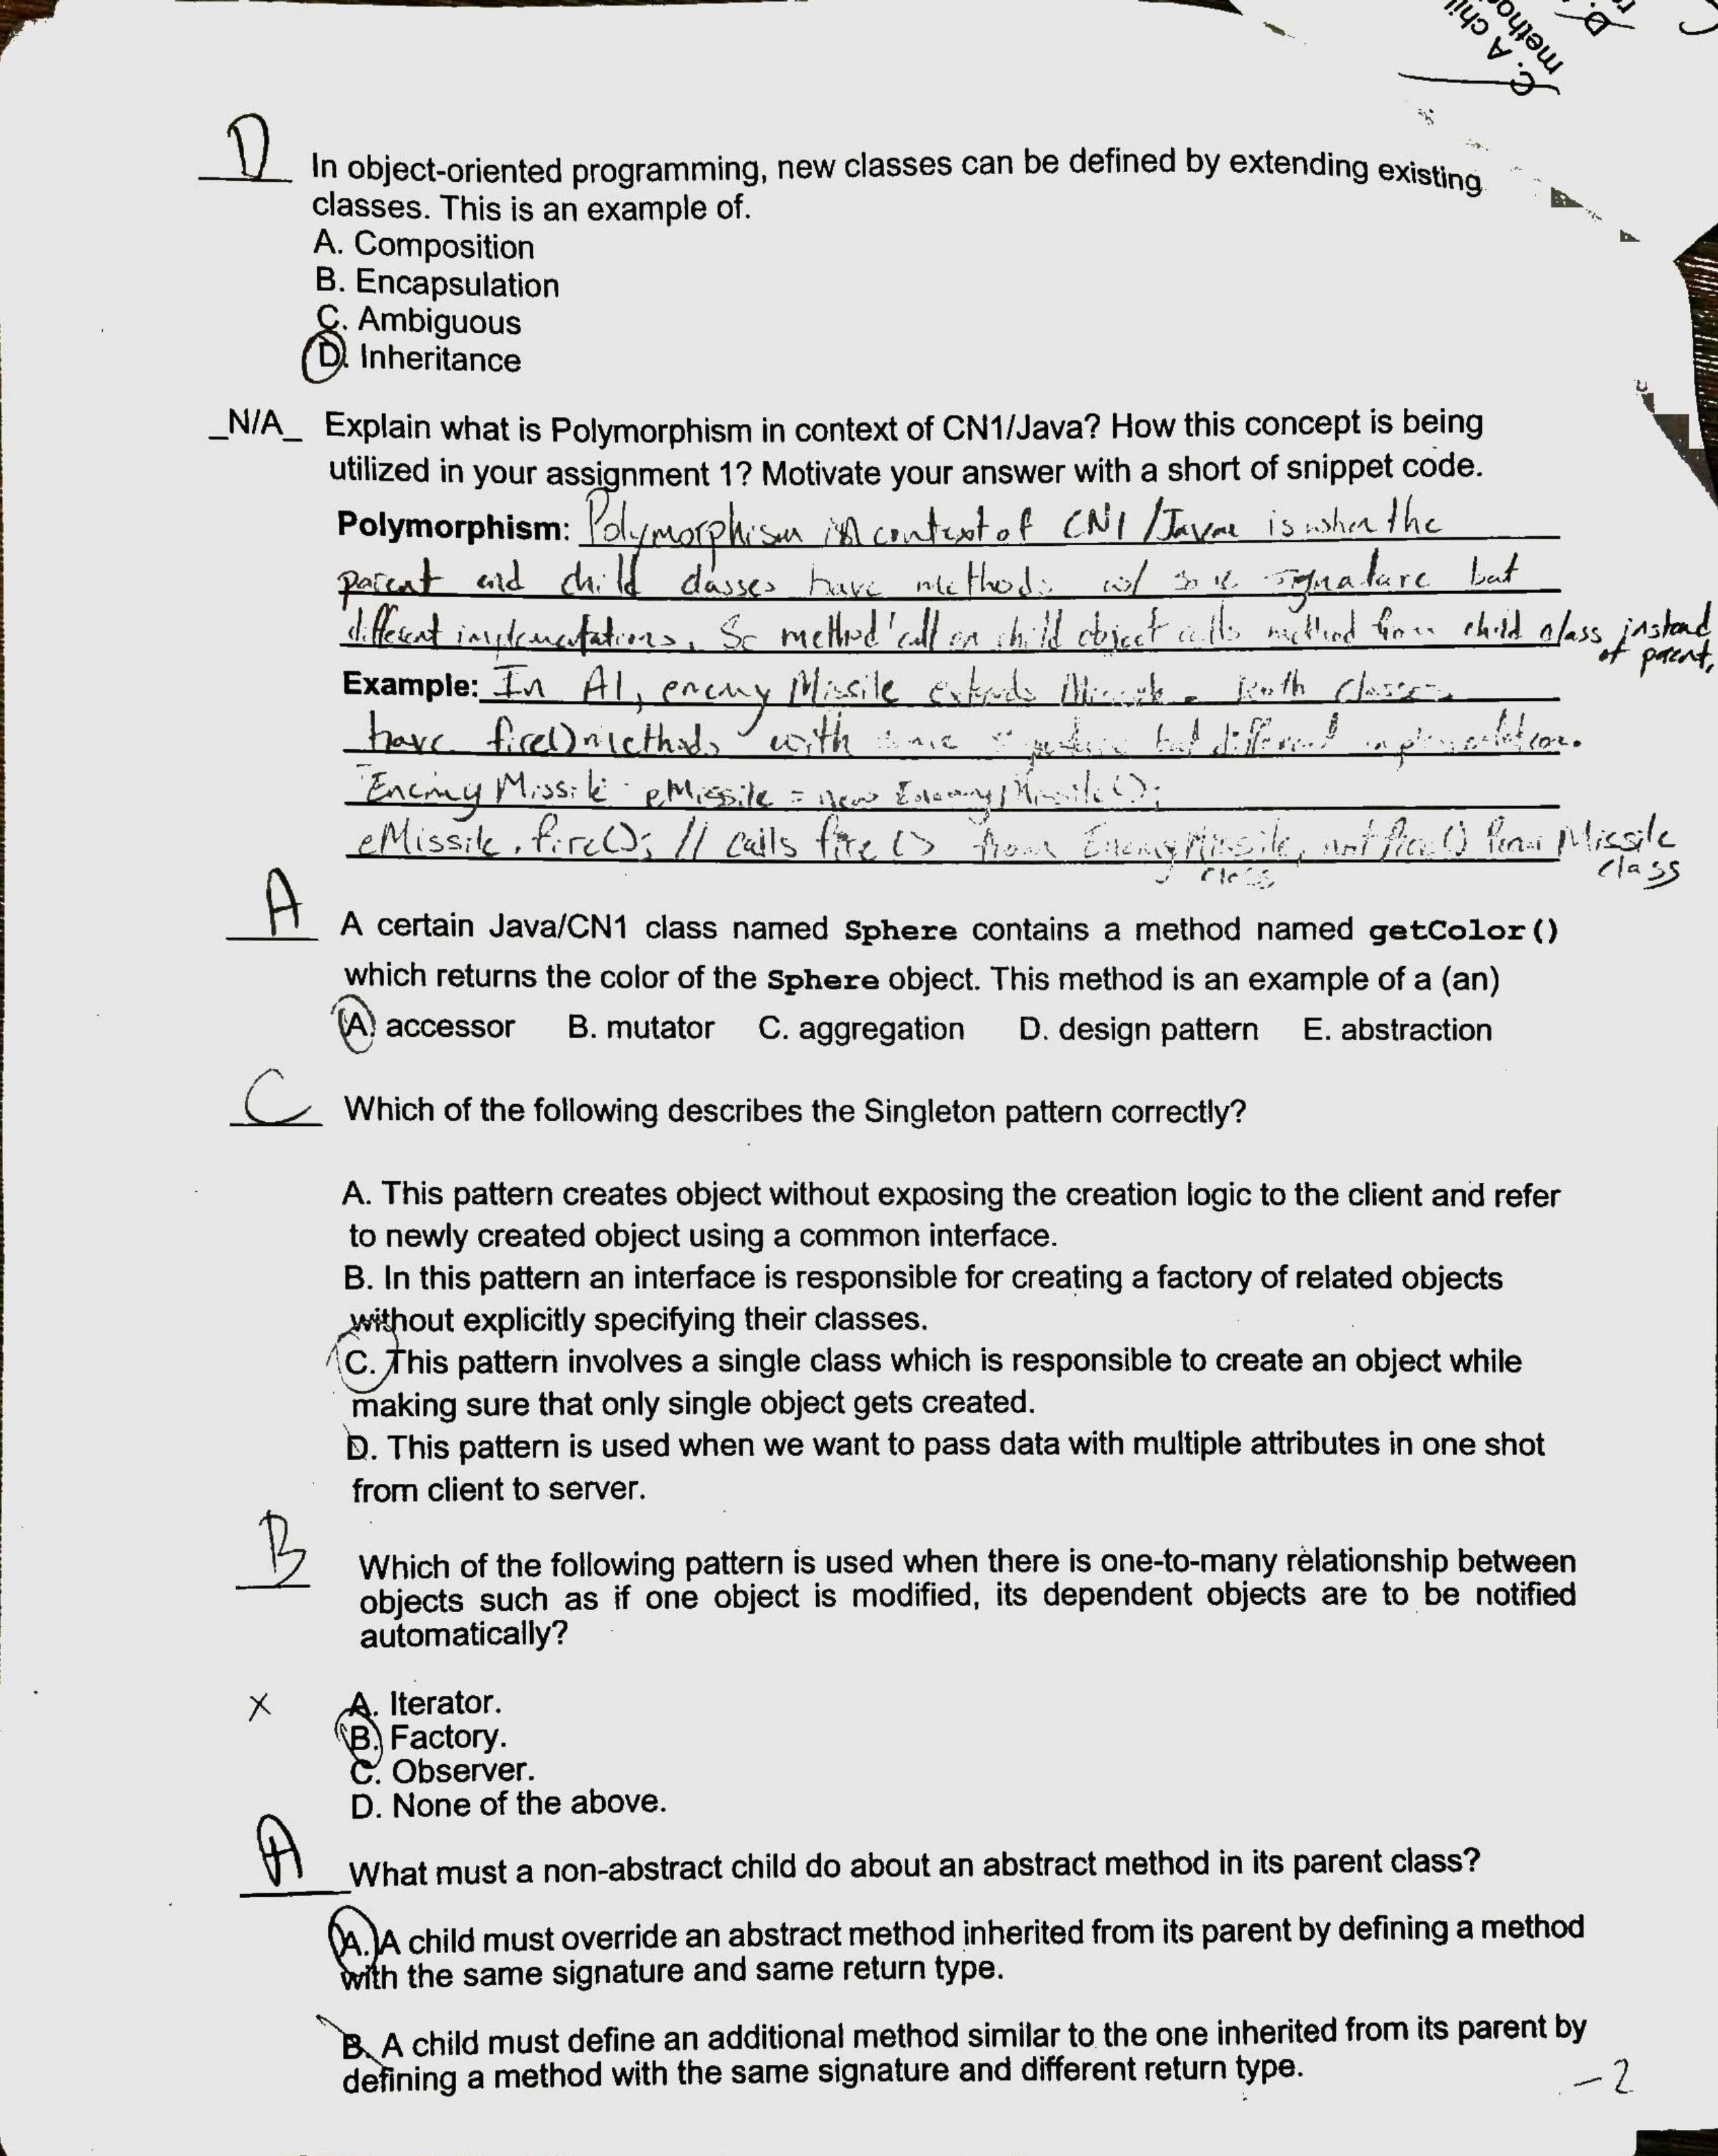 C. A chi
metho
D.
D In object-oriented programming, new classes can be defined by extending existing
classes. This is an example of.
A. Composition
B. Encapsulation
C. Ambiguous
D. Inheritance
_N/A_ Explain what is Polymorphism in context of CN1/Java? How this concept is being
utilized in your assignment 1? Motivate your answer with a short of snippet code.
Polymorphism: Polymorphism in context of CN1/Java is when the
parent and child classes have methods w/ same signature but
different implementations. So method call on child object calls method from child class instead
of parent.
Example: In A1, enemy Missile extends Missile. Both classes
have fire() methods with same signature but different implementation.
Enemy Missile eMissile = new EnemyMissile();
eMissile.fire(); // calls fire() from EnemyMissile, not fire() from Missile
class class
A A certain Java/CN1 class named Sphere contains a method named getColor()
which returns the color of the Sphere object. This method is an example of a (an)
A. accessor B. mutator C. aggregation D. design pattern E. abstraction
C Which of the following describes the Singleton pattern correctly?
A. This pattern creates object without exposing the creation logic to the client and refer
to newly created object using a common interface.
B. In this pattern an interface is responsible for creating a factory of related objects
without explicitly specifying their classes.
C. This pattern involves a single class which is responsible to create an object while
making sure that only single object gets created.
D. This pattern is used when we want to pass data with multiple attributes in one shot
from client to server.
B Which of the following pattern is used when there is one-to-many relationship between
objects such as if one object is modified, its dependent objects are to be notified
automatically?
X A. Iterator.
B. Factory.
C. Observer.
D. None of the above.
A What must a non-abstract child do about an abstract method in its parent class?
A. A child must override an abstract method inherited from its parent by defining a method
with the same signature and same return type.
B. A child must define an additional method similar to the one inherited from its parent by
defining a method with the same signature and different return type.
-2